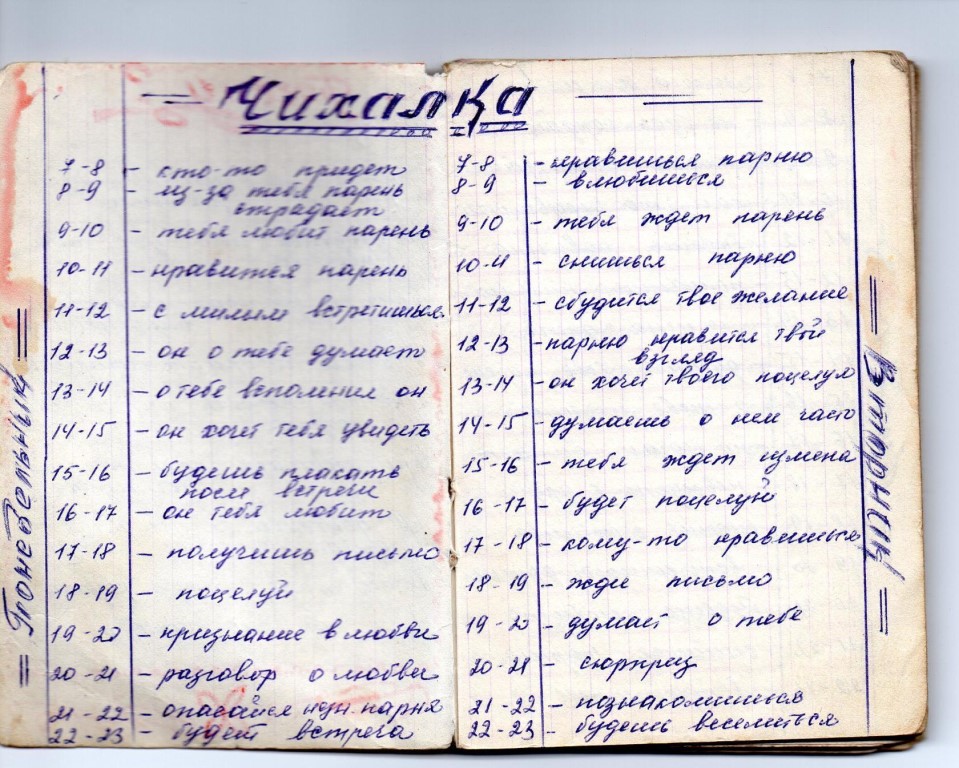 Чихалка
Понедельник
7-8 - кто-то придет
8-9 - из-за тебя парень
страдает
9-10 - тебя любит парень
10-11 - нравится парень
11-12 - с милым встретишься
12-13 - он о тебе думает
13-14 - о тебе вспомнил он
14-15 - он хочет тебя увидеть
15-16 - будешь плакать
после встречи
16-17 - он тебя любит
17-18 - получишь письмо
18-19 - поцелуй
19-20 - признание в любви
20-21 - разговор о любви
21-22 - опасайся парня
22-23 - будет встреча
Вторник
7-8 - нравишься парню
8-9 - влюбишься
9-10 - тебя ждет парень
10-11 - снишься парню
11-12 - сбудится твое желание
12-13 - парню нравится твой
взгляд
13-14 - он хочет твоего поцелуя
14-15 - думаешь о нем часто
15-16 - тебя ждет измена
16-17 - будет поцелуй
17-18 - кому-то нравишься
18-19 - жди письмо
19-20 - думает о тебе
20-21 - сюрприз
21-22 - познакомишься
22-23 - будешь веселиться